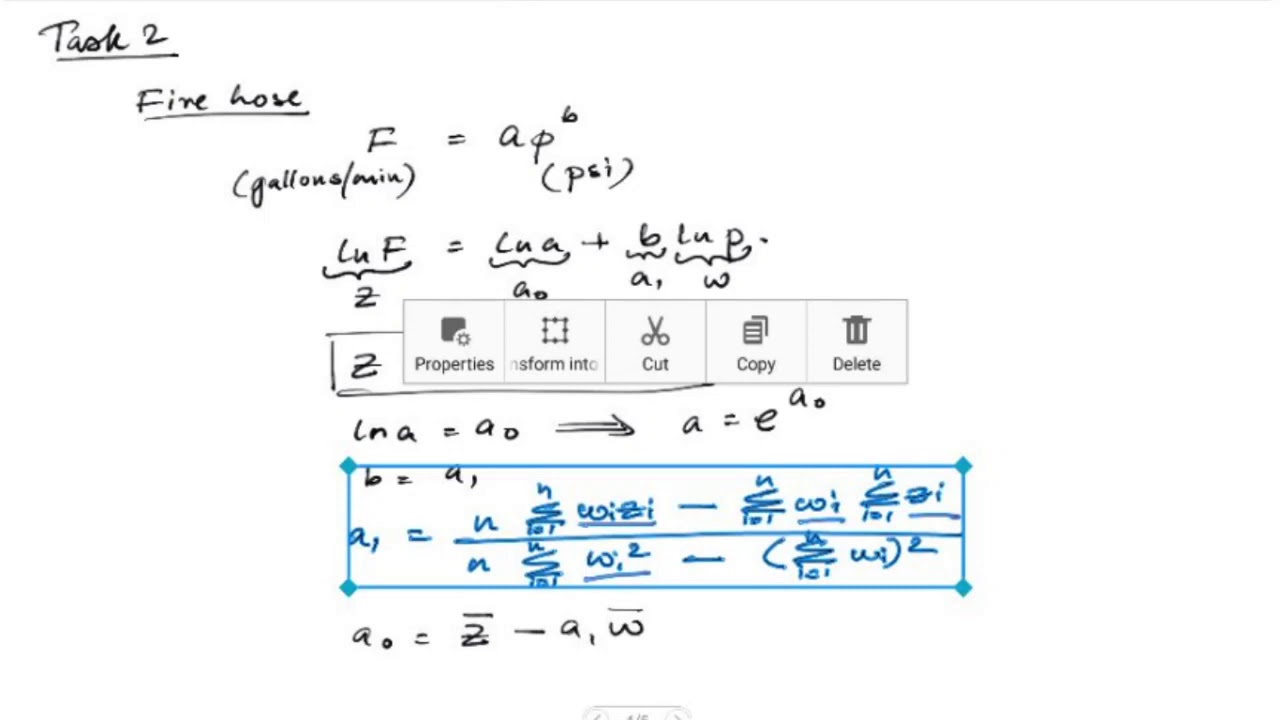 Task 2
Fire hose
F = a p^b
(gallons/min) (psi)
ln F = ln a + b ln p.
z a₀ a₁ w
z
Properties nsform into Cut Copy Delete
ln a = a₀ ⟹ a = e^{a₀}
b = a₁
a₁ = \frac{n \sum_{i=1}^{n} w_i z_i - \sum_{i=1}^{n} w_i \sum_{i=1}^{n} z_i}{n \sum_{i=1}^{n} w_i^2 - (\sum_{i=1}^{n} w_i)^2}
a₀ = z̄ - a₁ w̄